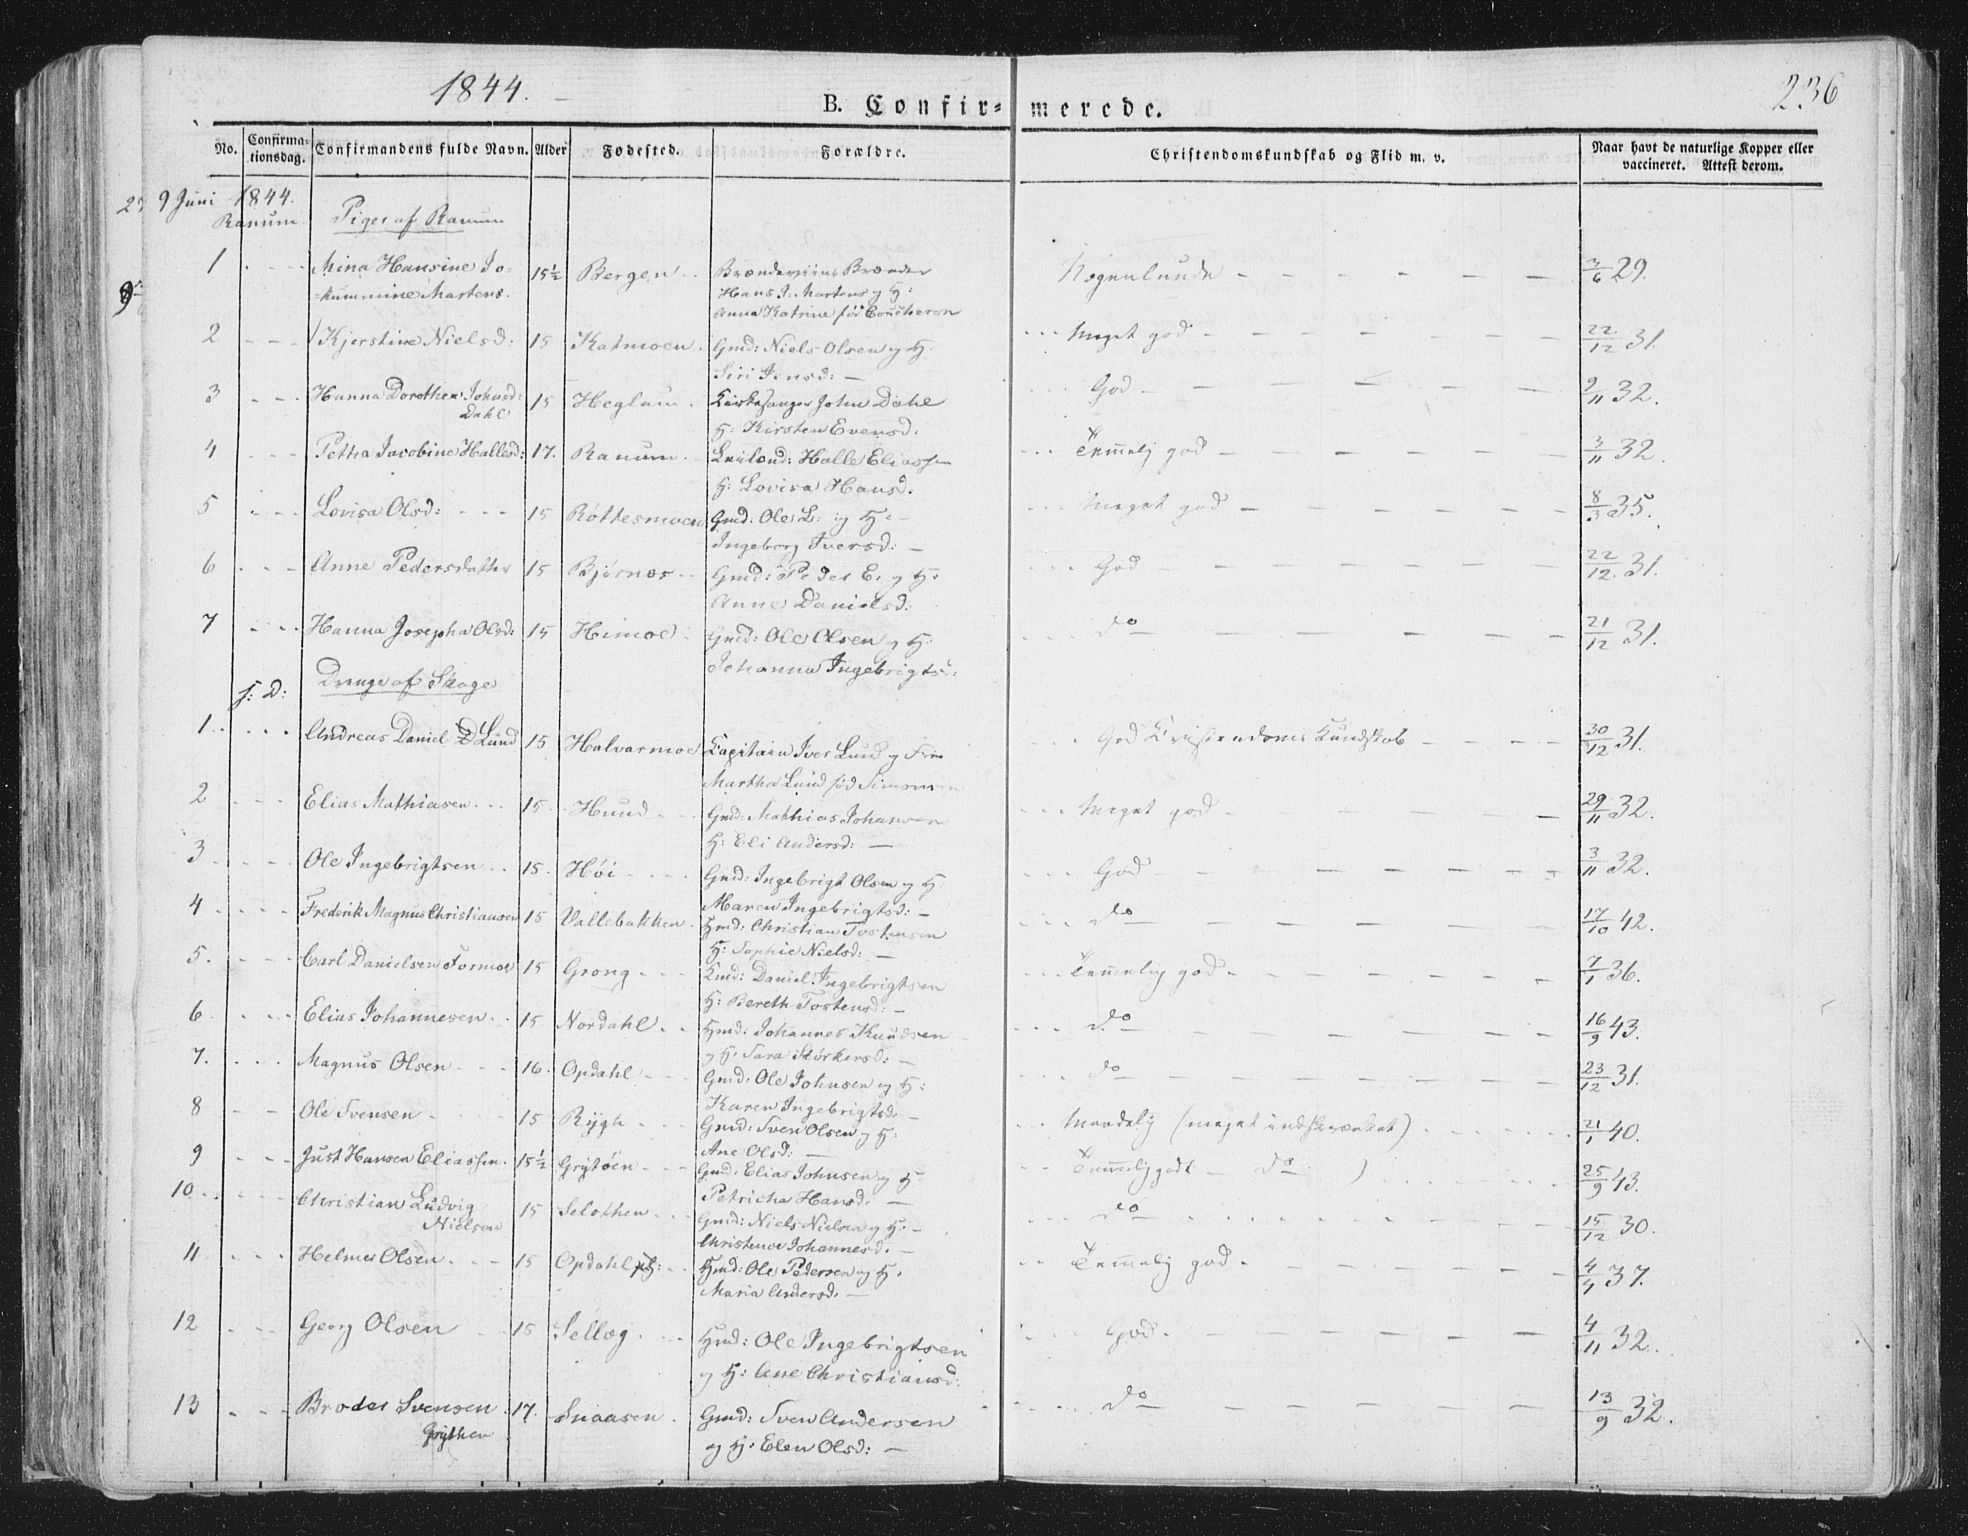 1844.
236
B. Confir-merede.
No. Confirmationsdag. Confirmandens fulde Navn. Alder Fødested. Forældre. Christendomskundskab og Flid m. v. Naar havt de naturlige Kopper eller vaccineret. Attest derom.
9 Juni 1844.
Ranum Piger af Ranum
1 Mina Hansine Jo= 15½ Bergen Hans J. Martens og H: Nogenlunde 3/6 29.
=kummine Martens. Anna Katrine fød
2 Kjerstine Nielsd: 15 Katmoen. Gmd: Niels Olsen og H. Meget god 22/12 31.
Siri Jensd: —
3 Hanna Dorothea Johnsd: 15 Heglum. Kirkesanger John Dahl God 9/11 32.
Dahl H: Kirsten Evensd.
4 Pettra Jacobine Hallesd: 17. Ranum. Leilænd: Halle Eliassen Temmelig god 3/11 32.
H: Lovisa Hansd.
5 Lovisa Olsd: 15 Røttesmoen Gmd: Ole L: og H: Meget god 8/3 35.
Ingeborg Iversd: —
6 Anne Pedersdatter 15 Bjørnes Gmd: Peder E: og H: God 22/12 31.
Anne Danielsd:
7 Hanna Josepha Olsd: 15 Heimoe Gmd: Ole Olsen og H: do 21/12 31.
Johanna Ingebrigtsd:
s: D: Drenge af Skage
1. Andreas Daniel D Lund 15 Halvarmoe Capitain Iver Lund og Fru God Kristendoms Kundskab 30/12 31.
Martha Lund fød Simonsen
2 Elias Mathiasen 15. Hund Gmd: Mathias Johansen Meget god 29/11 32.
H: Eli Andersd: —
3 Ole Ingebrigtsen 15. Høi Gmd: Ingebrigt Olsen og H: God 3/11 32.
Maren Ingebrigtsd: —
4 Frederik Magnus Christiansen 15 Vallebakken. Hmd: Christian Tostensen do 17/10 42.
H: Sophie Nielsd: —
5. Carl Danielsen Formoe 15 Grong Daniel Ingebrigtsen Temmelig god 7/1 36.
H: Bereth Tostensd: —
6 Elias Johannesen 15 Nordahl Hmd: Johannes Knudsen do 16/9 43.
og H: Sara Størkersd: —
7. Magnus Olsen 16. Opdahl Gmd: Ole Johnsen og H: do 23/12 31.
Karen Ingebrigtsd. —
8 Ole Svensen 15 Rygh Gmd: Sven Olsen og H: Maadelig (meget indskrænket) 21/1 40.
Ane Olsd: —
9 Just Hansen Eliassen. 15½ Grytøen Gmd: Elias Johnsen og H: Temmelig godt — do ) 25/9 43.
Petricha Hansd: —
10 Christian Ludvig 15 Selothen Gmd: Niels Nielsen og H: — do 15/12 30.
Nielsen Christence Johannesd. —
11 Helmer Olsen 15 Opdahl Hmd: Ole Pedersen og H. Temmelig god 4/4 37.
Maria Andersd. —
12 Georg Olsen 15 Selløg Hmd: Ole Ingebrigtsen God. 4/11 32.
og H: Ane Christiansd:
13 Broder Svensen 17. Snaasen. Gmd: Sven Andersen do 13/9 32.
Grythen og H: Elen Olsd: —